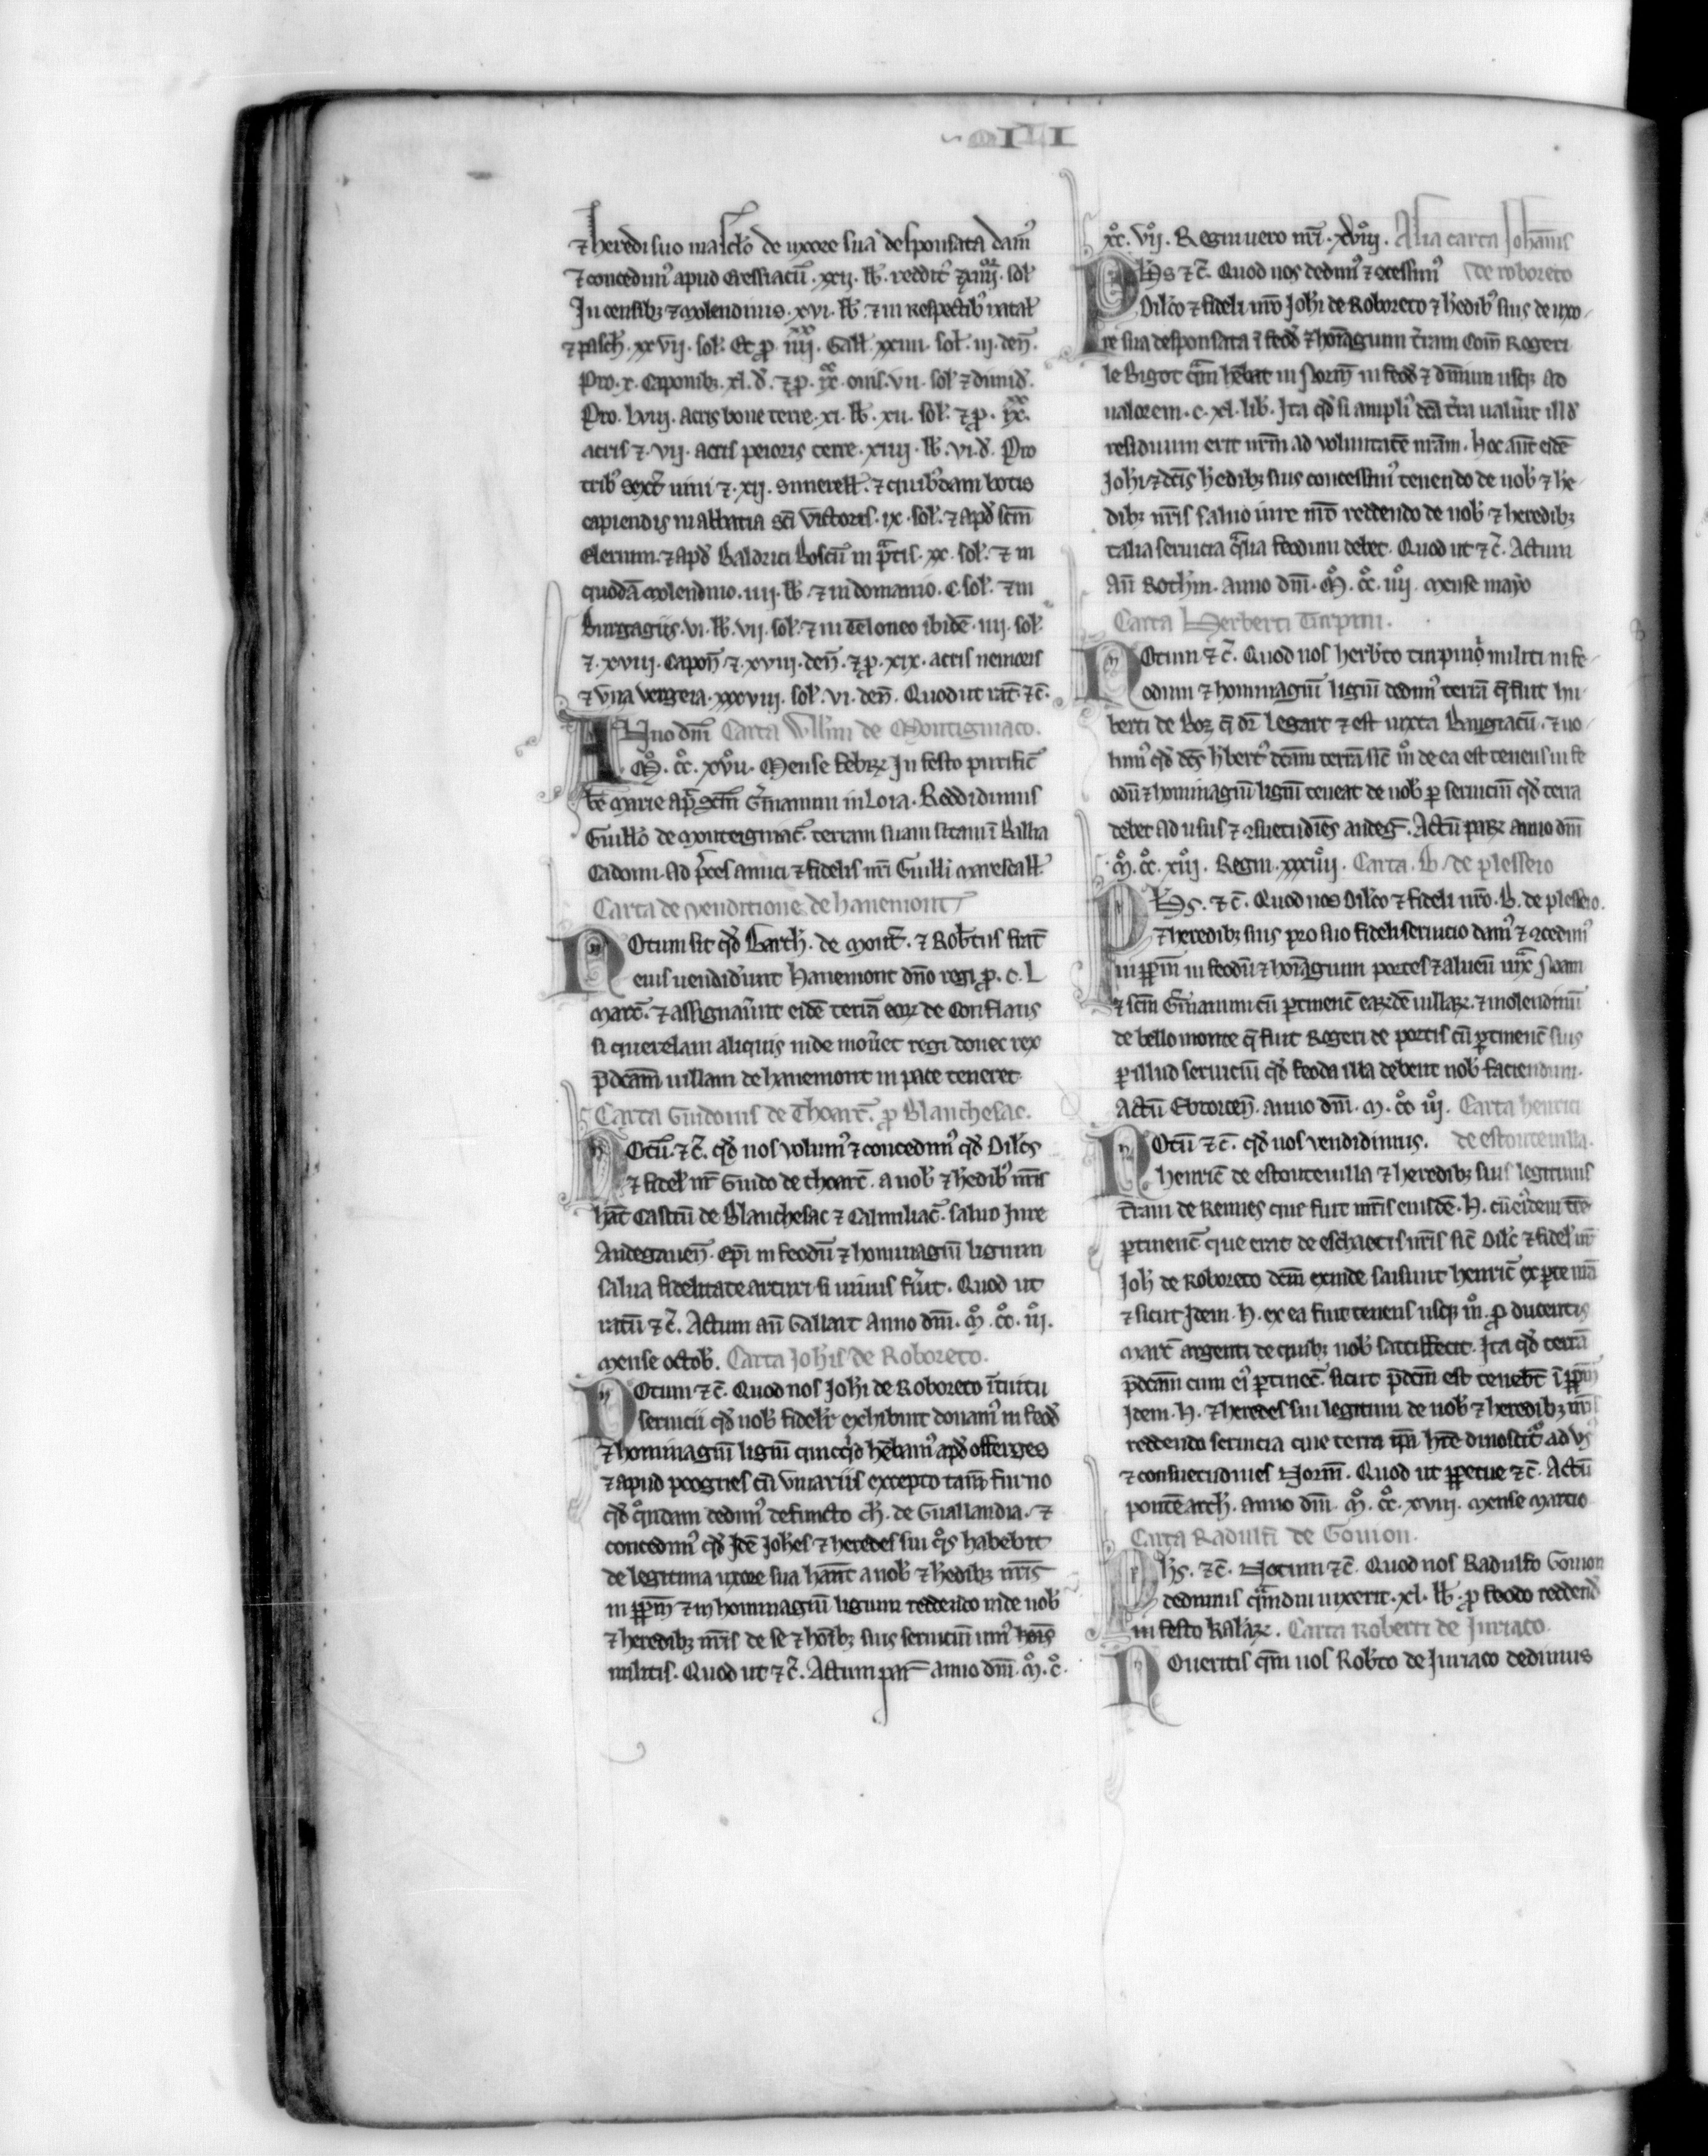 ⁊ heredi suo mascl̓o de uxore sua desponsata dam᷒
⁊ concedim᷒ apud Cressiacū. xxii. lb̓. reddit᷒ ⁊ xiiii. sol̓
In censibꝫ ⁊ molendinis. xvi. lb̓. ⁊ in Respectib᷒ natal̓
⁊ pasch̓. xxvii. sol̓. Et ꝓ. iiii. Gall̓. xxiiii. sol̓. iii. den̄.
Pro. x. Caponibꝫ. xl. d̓. ⁊ ꝓ. ix. ouis. vii. sol̓ ⁊ dimid̓.
Pro. lviii. acris bone terre. xi. lb̓. xii. sol̓. ⁊ ꝓ. ix.
acris ⁊. vii. acris peioris terre. xiiii. lb̓. vi. d̓. Pro
trib᷒ sext̓ uini ⁊. xii. ⁊ quib᷒dam botis
capiendis in abbatia sc̄i victoris. ix. sol̓. ⁊ apd̓ sc̄m
elerum. ⁊ apd̓ Baldrici Boscū in p̃tis. xx. sol̓. ⁊ in
quodā molendino. iiii. lb̓. ⁊ in domanio. c. sol̓. ⁊ in
Burgagiis. vi. lb̓. vii. sol̓. ⁊ in Teloneo ibidē. iiii. sol̓.
⁊. xviii. Capon̄ ⁊. xviii. den̄. ⁊ ꝓ. xix. acris nemoris
⁊ vna vergeia. xxxviii. sol̓. vi. den̄. Quod ut rat̄ ⁊c̄.
ANno dn̄i Carta Will̓mi de Montigniaco.
M̊. c̊c. xv̊ii. Mense febrꝝ In festo purific̄
be᷒ marie ap̃ sc̄m G̓manum in Loia. Reddidimus
Guill̓o de monteigniac̄. terram suam sitam ī Ballia
Cadomi. ad p̃ces amici ⁊ fidelis nr̄i Guill̓i marescall̓.
Carta de venditione de hanemont
NOtum sit qd̓ Barth̓. de mont̄. ⁊ Rob̓tus frat̄
eius uendider̄unt hanemont dn̄o regi ꝓ. c. L
marc̄. ⁊ assignauer̄unt eidē terrā eoꝝ de Conflans
si querelam aliquis inde mou̓et regi donec rex
p̄dc̄am uillam de hanemont in pace teneret.
Carta Guidonis de Thoarc̄. ꝓ Blanchesac.
NOtū. ⁊c̄. qd̓ nos volum᷒ ⁊ concedim᷒ qd̓ Dil̓cs
⁊ fidel̓ nr̄ Guido de thoarc̄. a nob̓ ⁊ h̓edib᷒ nr̄is
hāt Castrū de Blanchesac ⁊ Calmiliac̄. saluo Iure
Andegauen̄. ep̄i in feodū ⁊ hominagiū ligium
salua fidelitate arturi si uiuus fu̓it. Quod ut
ratū ⁊c̄. Actum aū Gallart Anno dn̄i. M̊. c̊c. iii̊.
mense octob̓. Carta Ioh̓is de Roboreto.
NOtum ⁊c̄. Quod nos Ioh̓i de Roboreto ītuitu
seruicii qd̓ nob̓ fidelit̓ exhibuit donam᷒ in feod̓
⁊ hominagiū ligiū quicq̓d hēbam᷒ apd̓ offerges
⁊ apud poognes cū vinariis excepto tam̄ furno
qd̓ q̓ndam dedim᷒ defuncto ch̓. de Guallandia. ⁊
concedim᷒ qd̓ Idē Ioh̓es ⁊ heredes sui q̓s habebit
de legitima uxore sua hāt a nob̓ ⁊ h̓edibꝫ nr̄is
in ꝑpm̄ ⁊ in hominagiū ligium reddendo inde nob̓
⁊ heredibꝫ nr̄is de se ⁊ hoīƀꝫ suis seruiciū uni᷒ hoīs
militis. Quod ut ⁊c̄. Actum par̄ anno dn̄i. M̊. c̊.
x̊c. vi̊i. Regni uero nr̄i. xvi̊ii. Alia carta Iohānis
PHS ⁊c̄. Quod nos dedim᷒ ⁊ ꝯcessim᷒ de roboreto
Dil̓co ⁊ fideli nr̄o Ioh̓i de Roboreto ⁊ h̓edib᷒ suis de uxo-
re sua desponsata ī feod̓ ⁊ hom̄agium t̓ram Com̄ Rogeri
le Bigot q̃m hēbat in Norm̄ in feod̓ ⁊ dn̄ium usqꝫ ad
ualorem. c. xl. lib̓. Ita qd̓ si ampli᷒ dc̄a t̓ra ualu̓it ill̓d
residuum erit nr̄m ad voluntatē nr̄am. hoc aūt eidē
Ioh̓i ⁊ dc̄is h̓edibꝫ suis concessim᷒ tenendo de nob̓ ⁊ he-
dibꝫ nr̄is saluo iure reddendo de nob̓ ⁊ heredibꝫ
talia seruicia q̃lia feodum debet. Quod ut ⁊c̄. Actum
aū Roth̓m. anno dn̄i. M̊. c̊c. iiii̊. mense mayo
Carta Herberti Turpini.
NOtum ⁊c̄. Quod nos herb̓to turpino militi in fe-
odum ⁊ hommagiū ligiū dedim᷒ terrā q̄ fuit hu-
berti de Boz q̄ dr̄ legart ⁊ est iuxta Brugnacū. ⁊ uo-
lum᷒ qd̓ dc̄s h̓bert᷒ dc̄am terrā sic̄ m̊ de ea est tenens in fe
odū ⁊ hominagiū ligiū teneat de nob̓ ꝑ seruiciū qd̓ terra
debet ad usus ⁊ ꝯsuetudiēs andeḡ. Actū par̄ anno dn̄i
M̊. c̊c. xi̊ii. Regni. xxxii̊ii. Carta. B. de plesseio
PHS. ⁊c̄. Quod nos Dil̓co ⁊ fideli nr̄o. B. de plesseio.
⁊ heredibꝫ suis pro suo fideli seruicio dam᷒ ⁊ ꝯcedim᷒
in ꝑpm̄ in feodū ⁊ hom̄agium portes ⁊ alneū iux̃ Noam
⁊ sc̄m G̓manum cū ꝑtinenc̄ earūdē uillaꝝ. ⁊ molendinū
de bello monte q̄ fuit Rogeri de portis cū ꝑtinenc̄ suis
ꝑ illud seruiciū qd̓ feoda illa debent nob̓ faciendum.
Actū Ebroicen̄. anno dn̄i. M. c̊c iii̊. Carta henrici
NOtū ⁊c̄. qd̓ nos vendidimus. de estouteuilla.
henric̄ de estouteuilla ⁊ heredibꝫ suis legitimis
t̓ram de Rennes que fuit mr̄is eiusdē. H. cū ei᷒dem t̓re
ꝑtinenc̄ que erat de eschaetis nr̄is sic̄ Dil̓c ⁊ fidel̓ nr̄
Ioh̓ de Roboreto dc̄m exinde saisiuit henric̄ ex ꝑte nr̄a
⁊ sicut Idem. H. ex ea fuit tenens usqꝫ m̊. ꝓ ducentis
marc̄ argenti de quibꝫ nob̓ satisfecit. Ita qd̓ terrā
p̄dc̄am cum ei᷒ ꝑtinēc̄. sicut p̄dc̄m est tenebt̄ ī ꝑpm̄
Idem. H. ⁊ heredes sui legitimi de nob̓ ⁊ heredibꝫ nr̄is
reddendo seruicia que terra ip̄a h̓re dinoscit᷒ ad vs᷒
⁊ consuetudines Norm̄. Quod ut ꝑpetue ⁊c̄. Actū
pontēarch̓. anno dn̄i. M̊. c̊c. xviii. mense martio
Carta Radulfi de Gouion.
PHS. ⁊c̄. Notum ⁊c̄. Quod nos Radulfo Gouion
dedimus q̃mdiu uixerit. xl. lb̓. ꝓ feodo reddend̓
in festo kalaꝝ. Carta Roberti de Iuriaco.
NOueritis qm̄ nos Rob̓to de Iuriaco dedimus